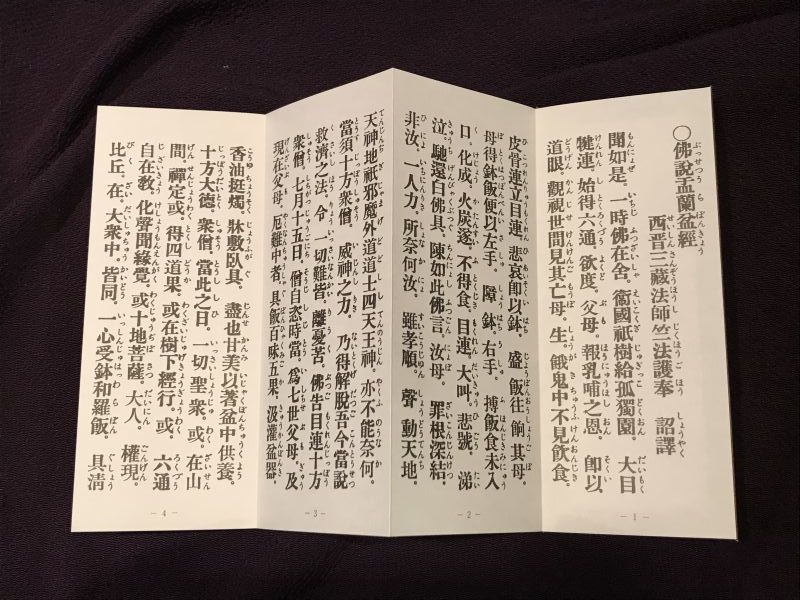 〇佛說盂蘭盆經
西晋三藏法師竺法護奉 詔譯
聞如是。一時佛在舍。衞國祇樹給孤獨園。 大目
犍連。始得六通 欲度。父母。報乳哺之恩。 卽以
道眼。觀視世間見其亡母。生。餓鬼中不見飮食。
-1-
皮骨連立目連。悲哀卽以鉢。盛 飯往 餉其母。
母得鉢飯便以左手。 障 鉢。右手。 摶飯食未入
口。化成。火炭遂。不得食。目連。大叫。悲號。 涕
泣。馳還白佛具。陳如此佛言。汝母。 罪根深結。
非汝。一人力。所奈何汝。 雖孝順。 聲 動天地。
-2-
天神地祇邪魔外道道士四天王神。亦不能奈何。
當須十方衆僧。 威神之力。 乃得解脫吾今當說
救濟之法。令一切難皆。離憂苦。 佛告目連十方
衆僧。七月十五日。僧自恣時當。爲七世父母。及
現在父母。厄難中者。具飯百味五果。 汲灌盆器。
-3-
香油挺燭。牀敷臥具。 盡世甘美以著盆中供養。
十方大德。衆僧。當此之日。一切聖衆。或。在山
間。禪定或。得四道果。或在樹下經行。或。六通
自在敎。化聲聞緣覺。或十地菩薩。大人。 權現。
比丘。在。大衆中。皆同。一心受鉢和羅飯。 具淸
-4-